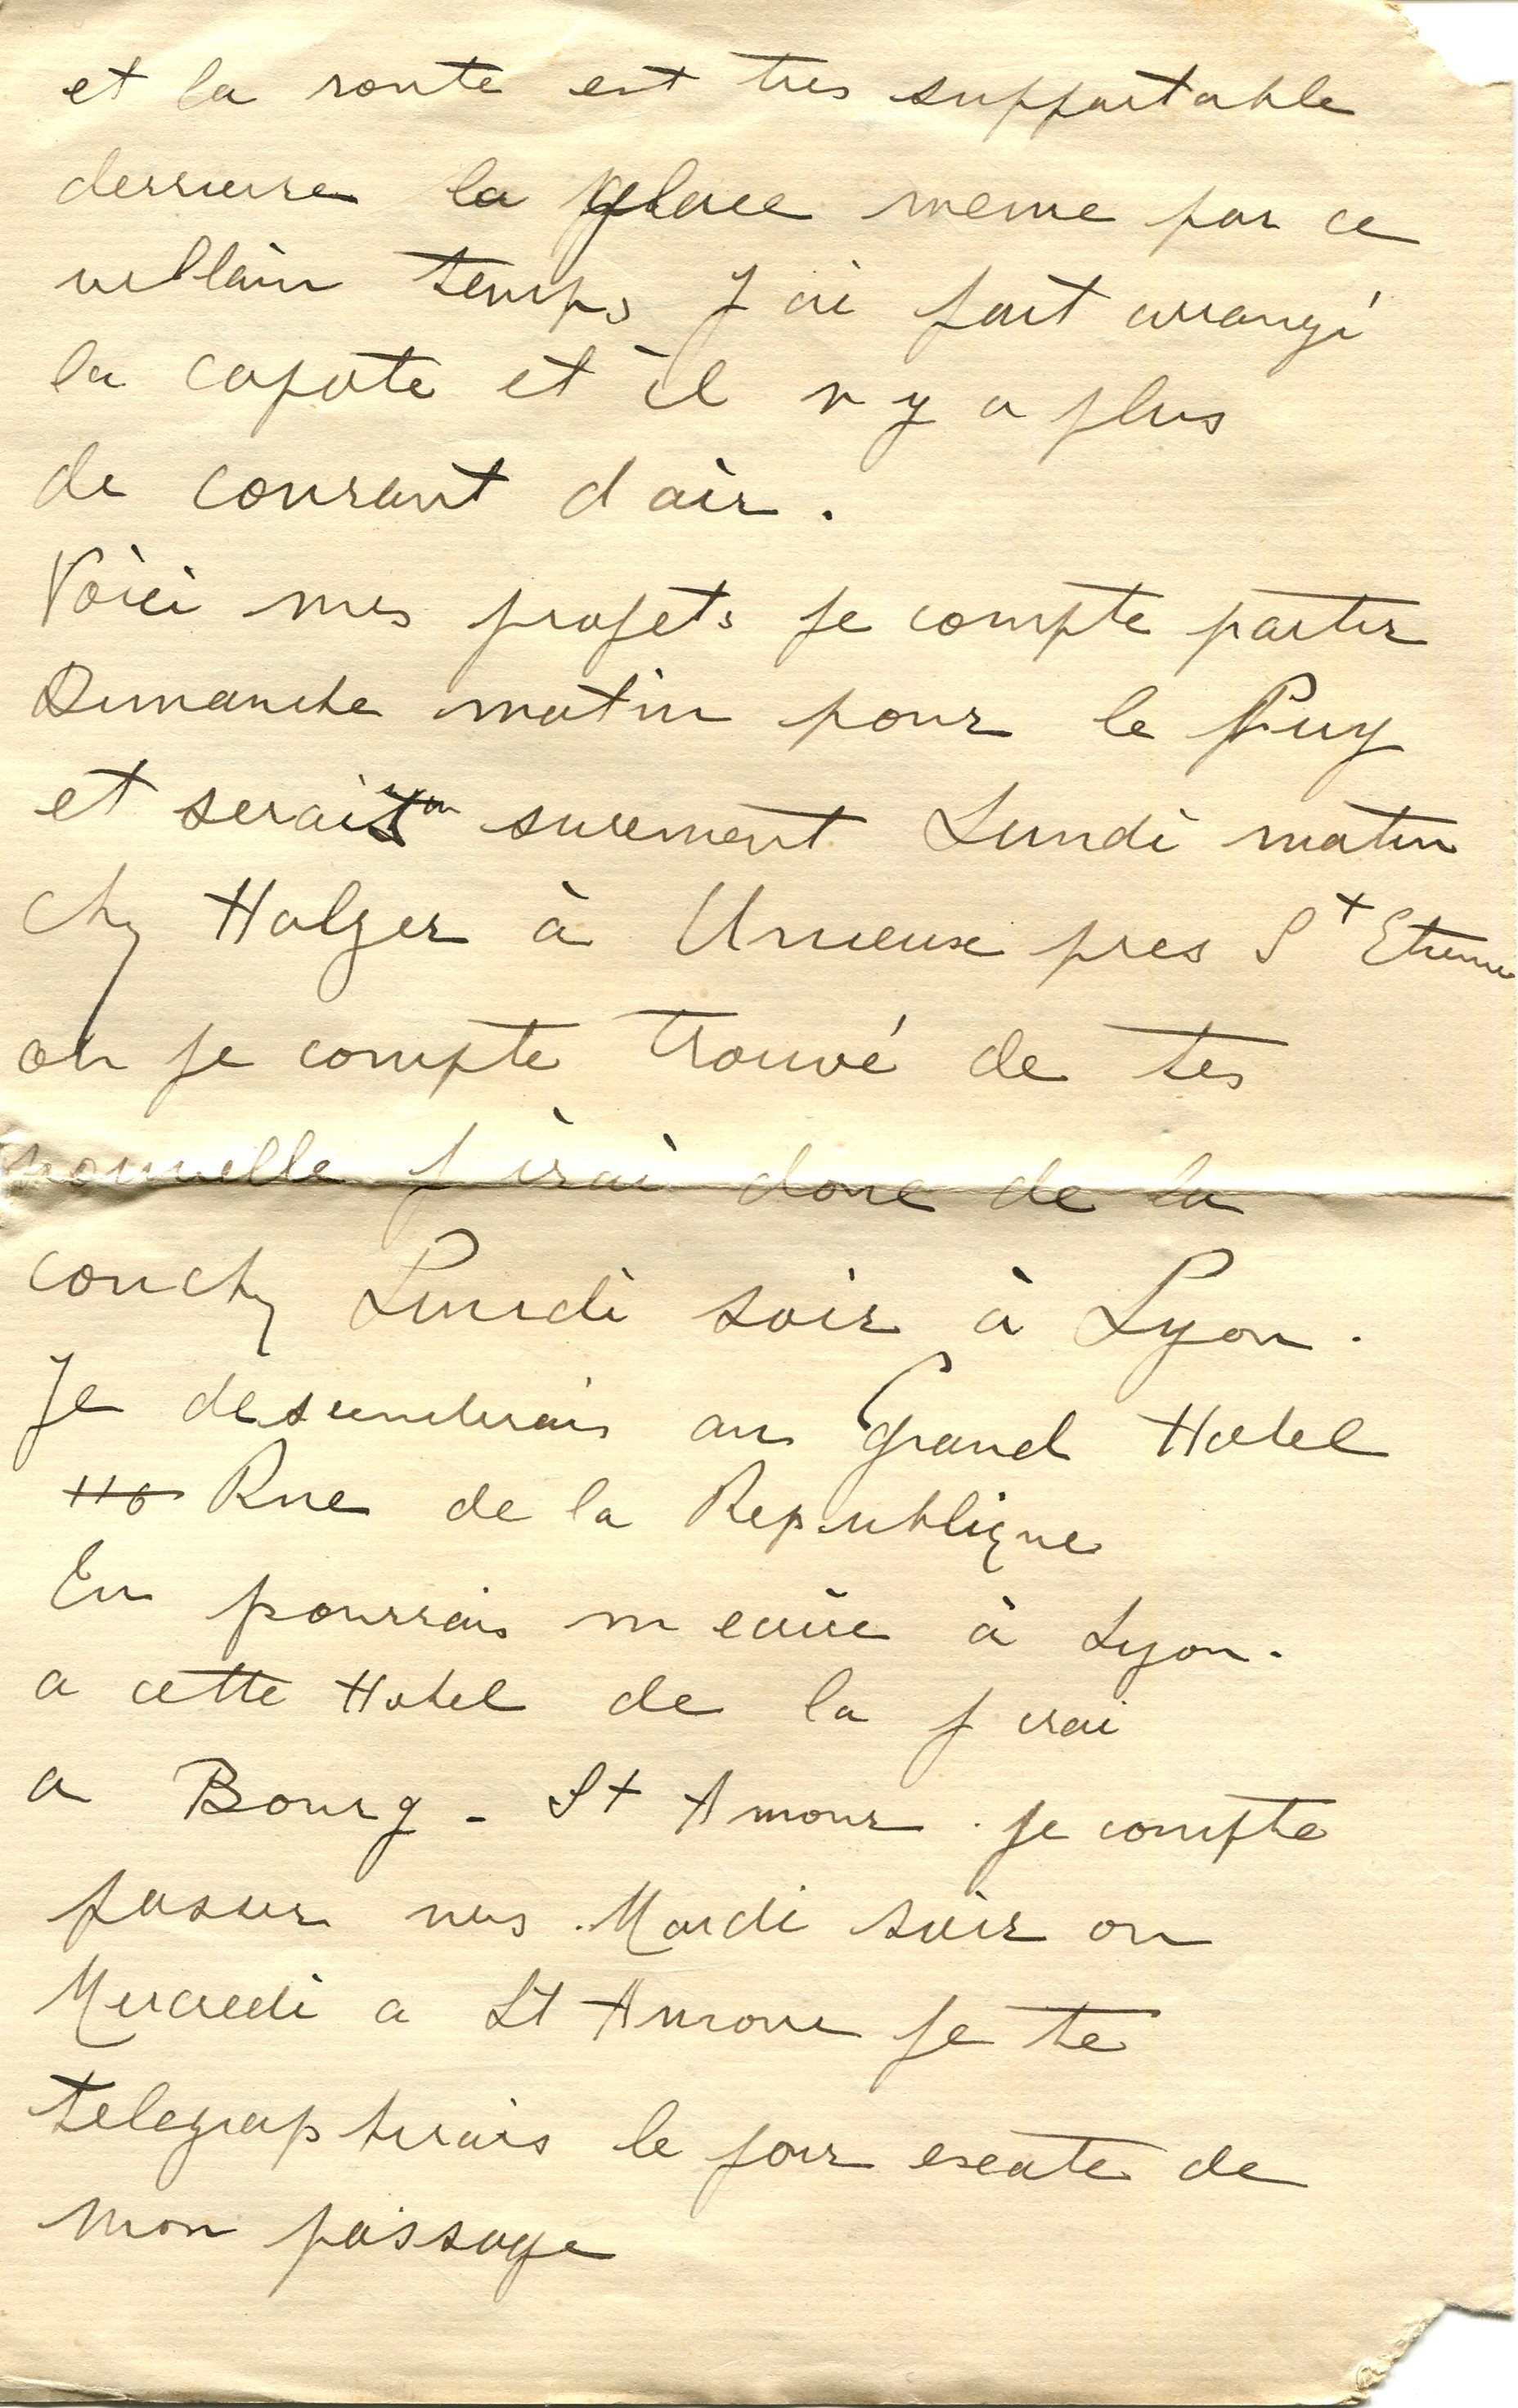 et la route est tres supportable
derriere la glace meme par ce
villain temps J ai fait arrangé
la capote et il n y a plus
de courant d air.
Voici mes projets je compte partir
Dimanche matin pour le Puy
et serais surement Lundi matin
chez Holzer à Unieux pres St Etienne
ou je compte trouvé de tes
nouvelle j irai donc de la
couchez Lundi soir à Lyon.
Je descendrais au Grand Hotel
Rue de la Republique
Tu pourrais m ecrire à Lyon.
a cette Hotel de la j irai
a Bourg - St Amour. je compte
passer vers Mardi soir ou
Mercredi a St Amour je te
telegraphierais le jour exate de
mon passage